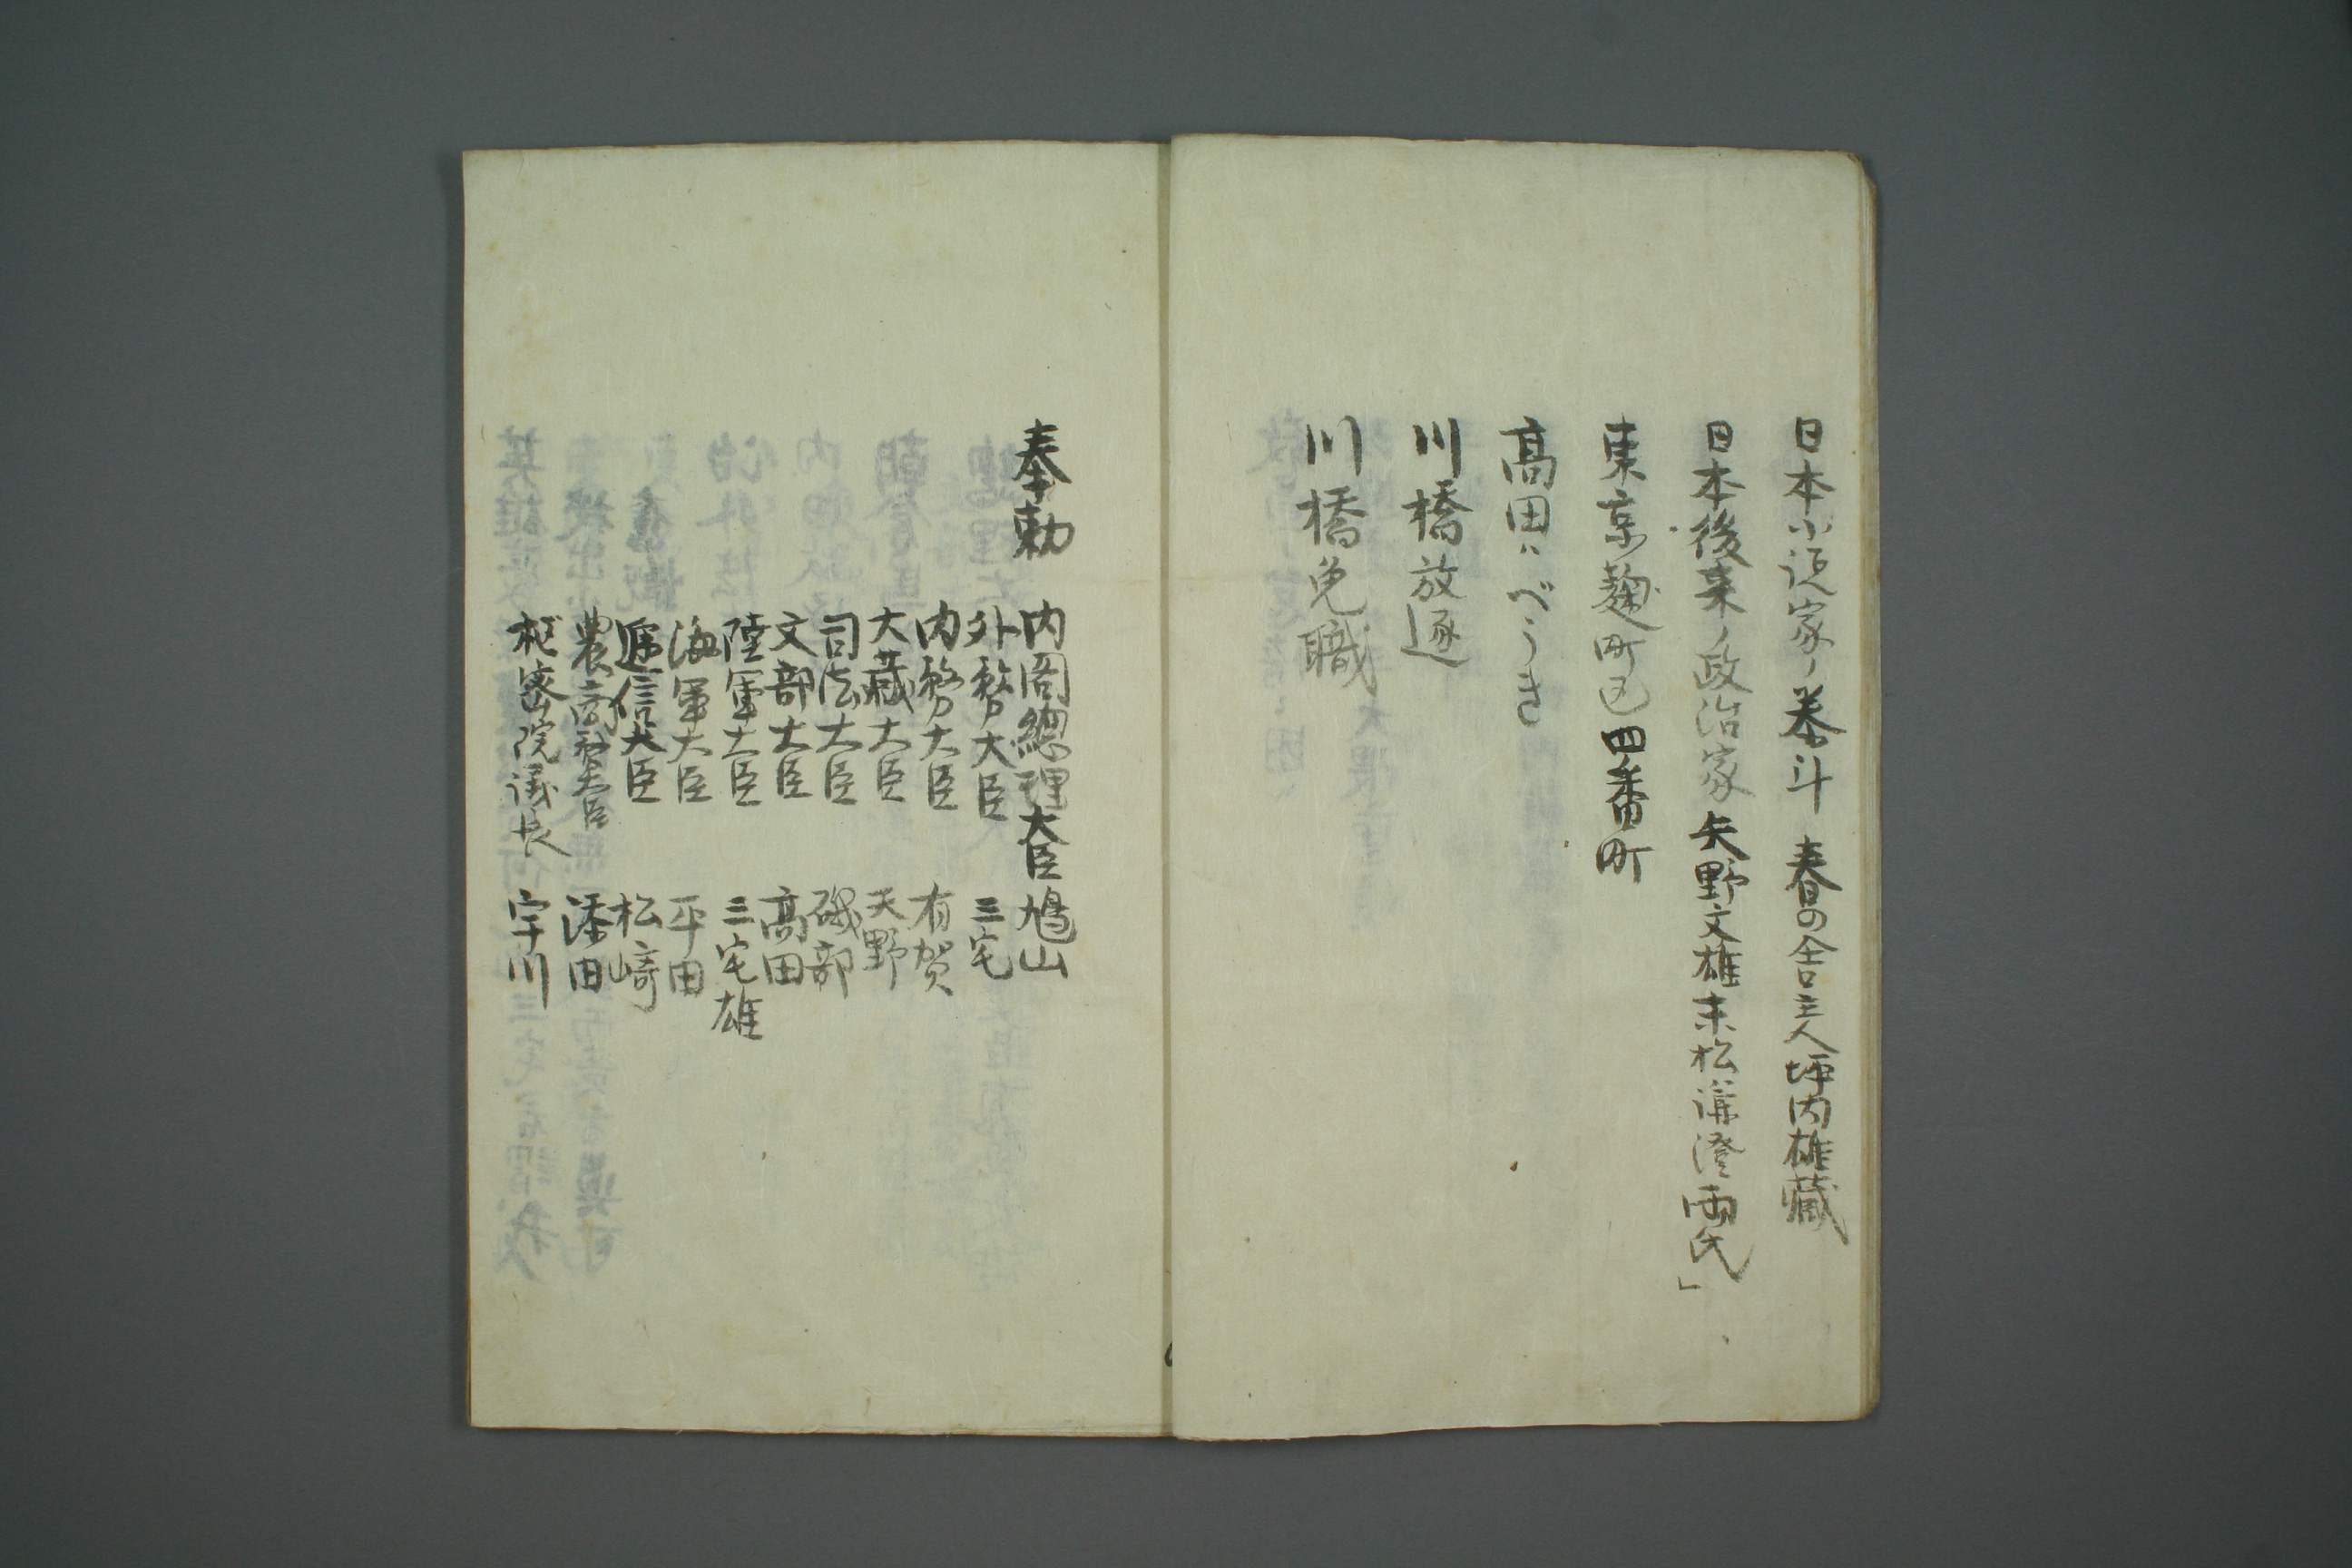 日本小説家ノ泰斗 春の舎主人坪内雄藏
日本後来ノ政治家矢野文雄末松溝澄両氏」
東京麹町区四番町
髙田ハべうき
川橋放逐
川橋免職
奉勅 内閣總理大臣 鳩山
外務大臣 三宅
内務大臣 有賀
大藏大臣 天野
司法大臣 磯部
文部大臣 髙田
陸軍大臣 三宅雄
海軍大臣 平田
逓信大臣 松﨑
農商務大臣 添田
枢密院議長 宇川